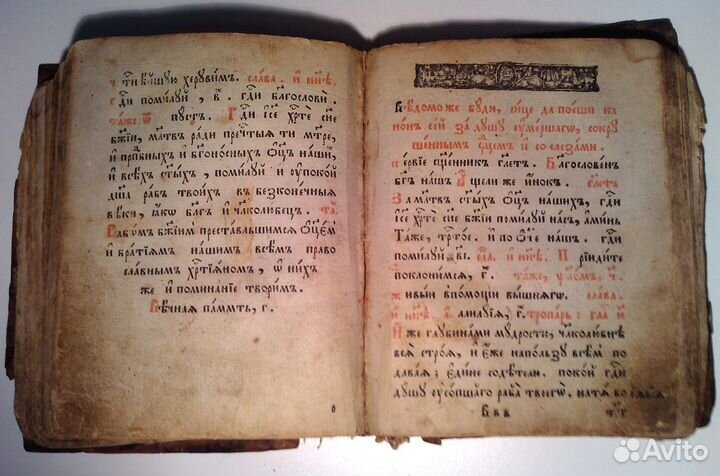 ч͠тнѣ́йшую херꙋви́мъ. сла́ва. и҆ ны́нѣ.
гдⷭ҇и поми́лꙋй, в҃. гдⷭ҇и бл҃гословѝ.
та́же ѿпꙋстъ. Гдⷭ҇и і҆с҃е хрⷭ҇те сн҃е
бж҃їи, мл҃твъ ра́ди пречⷭ҇тыѧ ти мт҃ре,
и҆ прпⷣбныхъ и҆ бг҃оно́сныхъ ѻ҆ц҃ъ на́шиⷯ,
и҆ всѣ́хъ ст҃ы́хъ, поми́лꙋй и҆ ᲂу҆поко́й
дш҃а ра́бъ твои́хъ въ безконе́чныѧ
вѣ́ки, ꙗ҆́кѡ бл҃гъ и҆ чл҃колю́бецъ. та́ⷤ
Рабѡ́мъ бж҃їимъ преста́вльшимсѧ ѻ҆ц҃е́мъ
и҆ бра́тїѧмъ на́шимъ всѣ́мъ право
сла́внымъ хрⷭ҇тїѧ́номъ, ѡ҆ ни́хъ
же и҆ помина́нїе твори́мъ.
Вѣ́чнаѧ па́мѧть, г҃.
Вѣ́домо же бꙋ́ди, си́це да пое́ши ка
но́нъ се́й за дꙋ́шꙋ ᲂу҆ме́ршагѡ, сокрꙋ
ше́ннымъ се́рⷣцемъ и҆ со слеза́ми.
пе́рвїе сщ҃е́нникъ гл҃етъ. Бл҃гослове́нъ
бг҃ъ на́шъ. А҆́ще ли же и҆́нокъ. гл҃етъ
За мл҃твъ ст҃ы́хъ ѻ҆ц҃ъ на́шихъ, гдⷭ҇и
і҆с҃е хрⷭ҇те сн҃е бж҃їи поми́лꙋй на́съ, а҆ми́нь
Та́же, трⷭ҇то́е. и҆ по ѻ҆́ч҃е на́шъ. гдⷭ҇и
поми́лꙋй в҃і. сла́. и҆ ны́нѣ. Прїиди́те
поклони́мсѧ, г҃. та́же, ѱало́мъ, ч҃.
живы́и в по́мощи вы́шнѧгѡ. сла́ва.
и҆ ны́нѣ. а҆лилꙋ́їѧ, г҃. тропа́рь. гла́ и҃
И҆́же глꙋбина́ми мꙋ́дрости, чл҃колю́бнѣ
всѧ̀ стро́ѧ, и҆ е҆́же на по́льзꙋ всѣ́мъ по
дава́ѧ: є҆ди́не соде́телю. поко́й гдⷭ҇и
дꙋ́шꙋ ᲂу҆со́пшаго раба̀ твоегѡ̀. на тѧ̀ бо
в в в
Avito